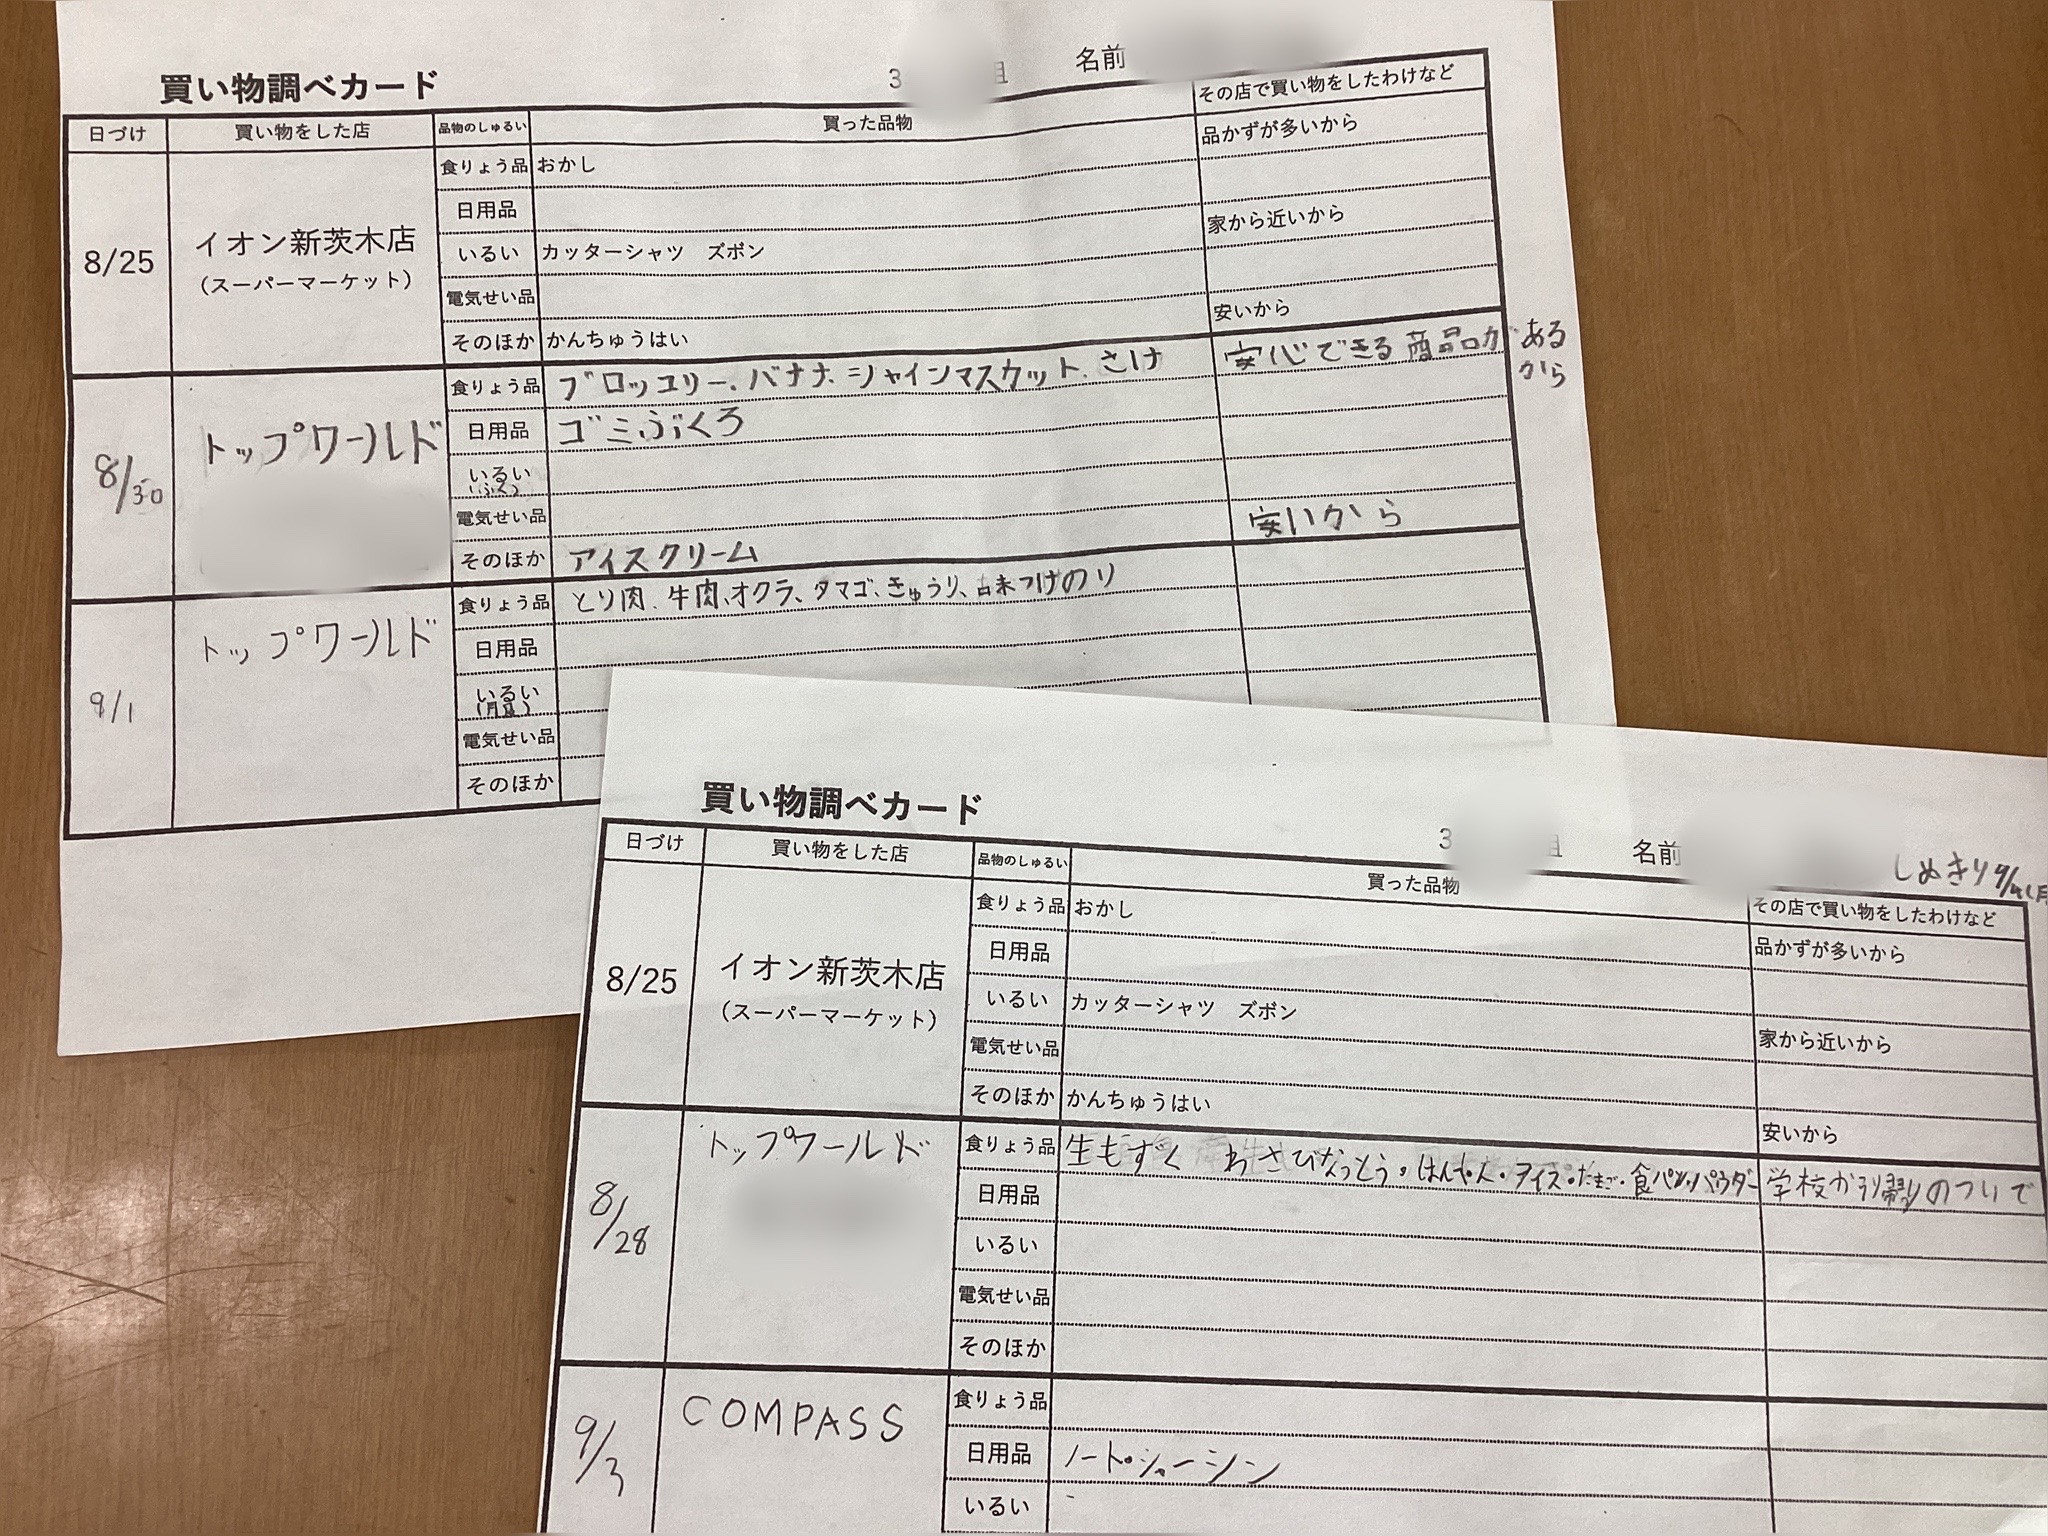 買い物調べカード
3 組 名前
日づけ 買い物をした店 品物のしゅるい 買った品物 その店で買い物をしたわけなど
8/25 イオン新茨木店
(スーパーマーケット)
食りょう品 おかし 品かずが多いから
日用品
いるい カッターシャツ ズボン 家から近いから
電気せい品
そのほか かんちゅうはい 安いから
8/30 トップワールド
食りょう品 ブロッコリー、バナナ、シャインマスカット、さけ 安心できる商品があるから
日用品 ゴミぶくろ
いるい
(ふく)
電気せい品 安いから
そのほか アイスクリーム
9/1 トップワールド
食りょう品 とり肉、牛肉、オクラ、タマゴ、きゅうり、味つけのり
日用品
いるい
(服)
電気せい品
そのほか
買い物調べカード
3 組 名前
しめきり
日づけ 買い物をした店 品物のしゅるい 買った品物 その店で買い物をしたわけなど
8/25 イオン新茨木店
(スーパーマーケット)
食りょう品 おかし 品かずが多いから
日用品
いるい カッターシャツ ズボン 家から近いから
電気せい品
そのほか かんちゅうはい 安いから
8/28 トップワールド
食りょう品 生もずく わさびなっとう・はんぺん・アイス・たまご・食パン・パウダー 学校から帰りのついで
日用品
いるい
電気せい品
そのほか
9/3 COMPASS
食りょう品
日用品 ノート・シャーシン
いるい